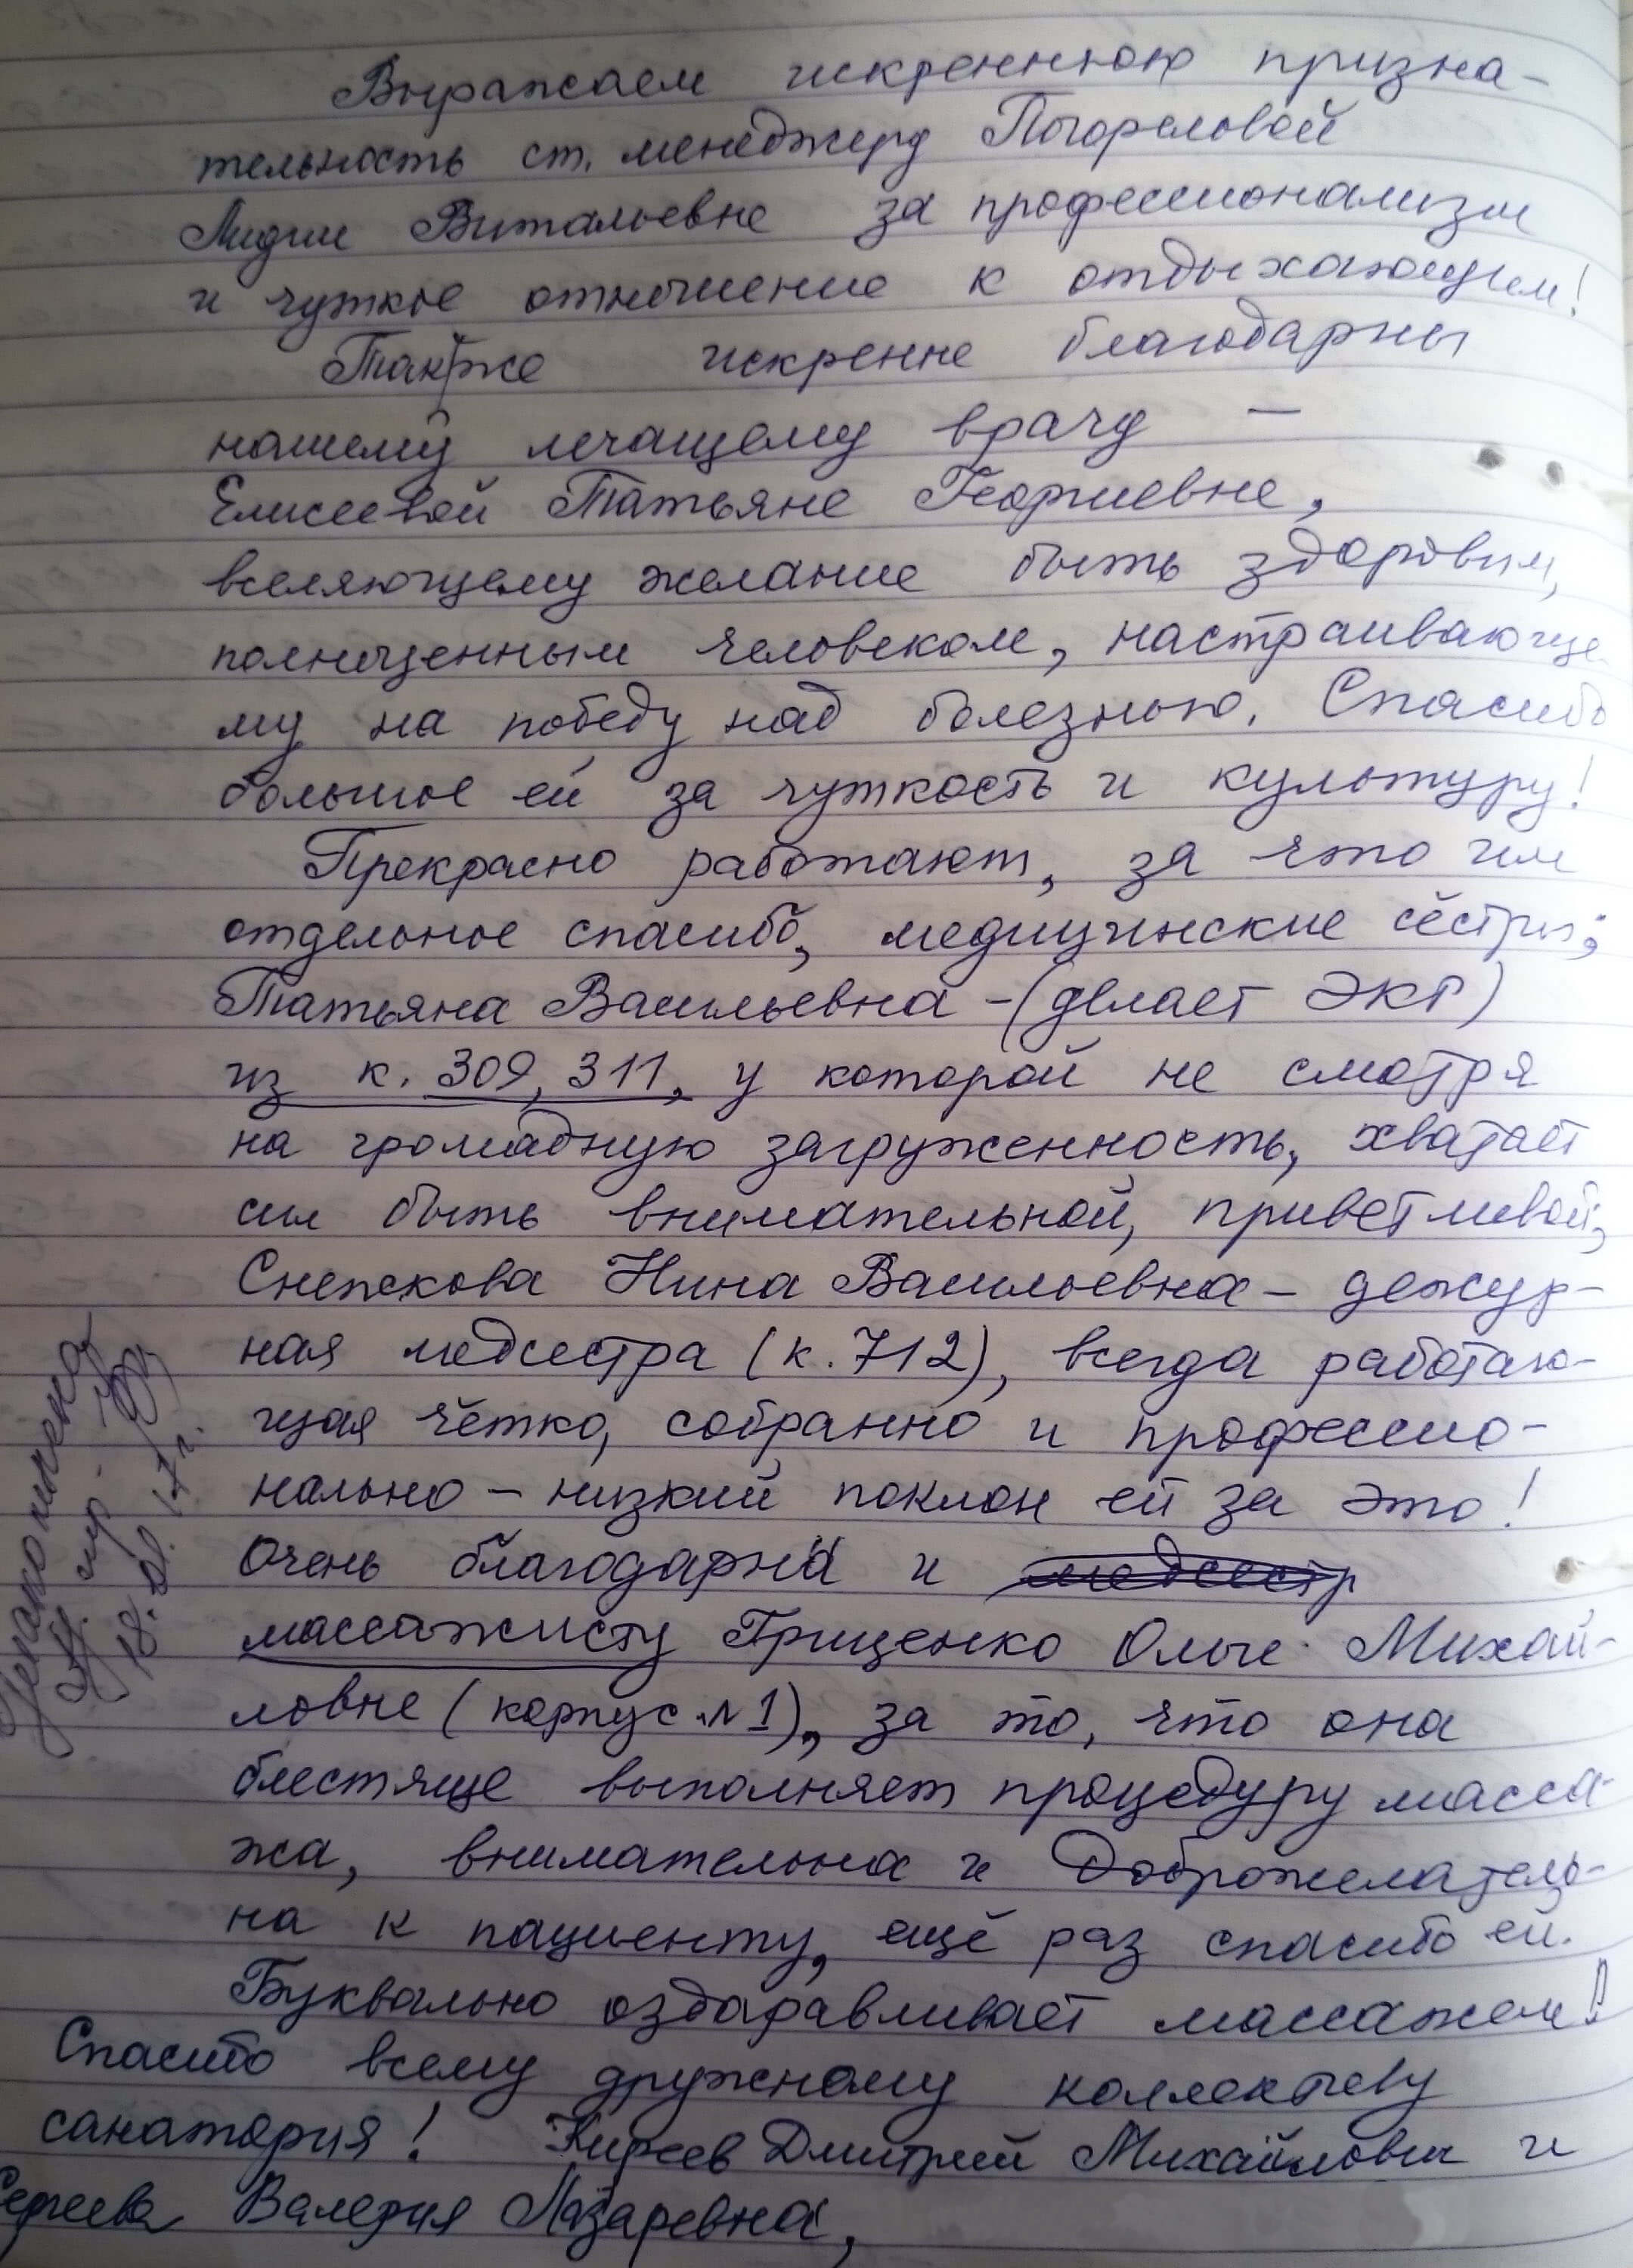 Выражаем искреннюю призна-
тельность ст. менеджеру Погореловой
Лидии Витальевне за профессионализм
и чуткое отношение к отдыхающим!
Также искренне благодарны
нашему лечащему врачу —
Елисеевой Татьяне Георгиевне,
вселяющему желание быть здоровым,
полноценным человеком, настраивающе
му на победу над болезнью. Спасибо
большое ей за чуткость и культуру!
Прекрасно работают, за что им
отдельное спасибо, медицинские сёстры:
Татьяна Васильевна - (делает ЭКГ)
из к. 309, 311, у которой не смотря
на громадную загруженность, хватает
сил быть внимательной, приветливой;
Снежкова Нина Васильевна - дежур-
ная медсестра (к. 712), всегда работаю-
щая чётко, собранно и профессио-
нально - низкий поклон ей за это!
Очень благодарна и медсестр
массажисту Гриценко Ольге Михай-
ловне (корпус №1), за то, что она
блестяще выполняет процедуру масса-
жа, внимательна и доброжелатель-
на к пациенту, ещё раз спасибо ей.
Буквально оздаравливает массажем!
Спасибо всему дружному коллективу
санатория! Киреев Дмитрий Михайлович и
Валерия Лазаревна,
18.01.17 г.